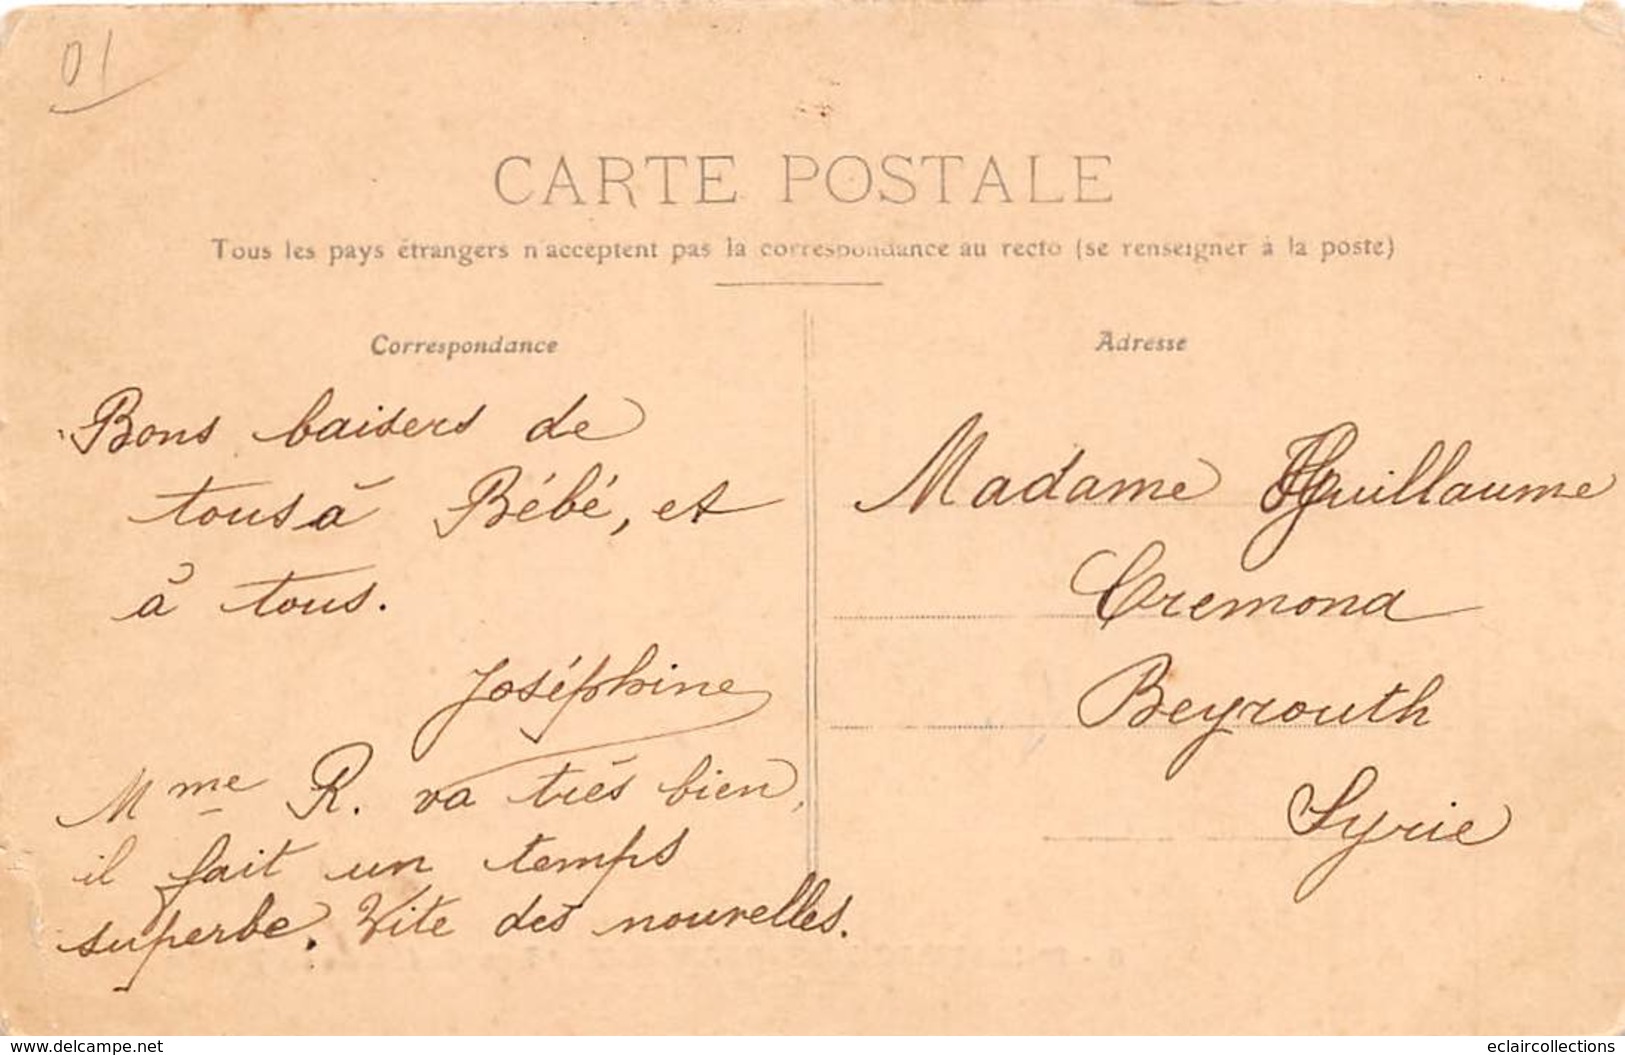 01
CARTE POSTALE
Tous les pays étrangers n'acceptent pas la correspondance au recto (se renseigner à la poste)
Correspondance
Bons baisers de
tous à Bébé, et
à tous.
Joséphine
Mme R. va très bien,
il fait un temps
superbe. Vite des nouvelles.
Adresse
Madame Guillaume
Cremona
Beyrouth
Syrie
www.delcampe.net
eclaircollections